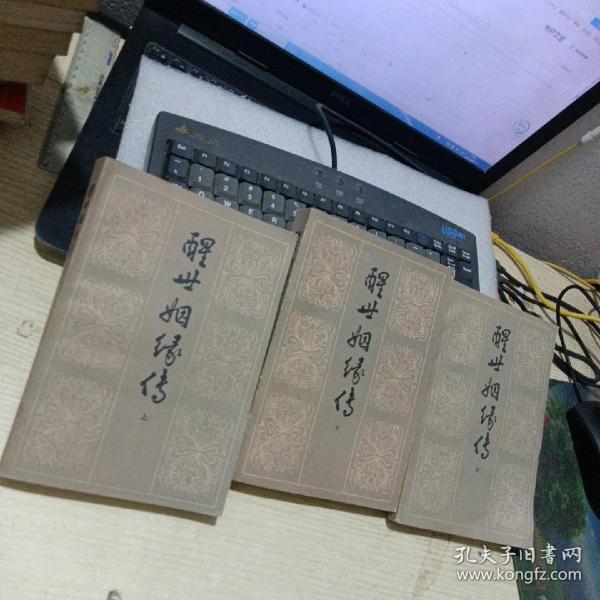 DELL
醒世姻缘传
上
醒世姻缘传
下
醒世姻缘传
中
孔夫子旧书网
www.kongfz.com